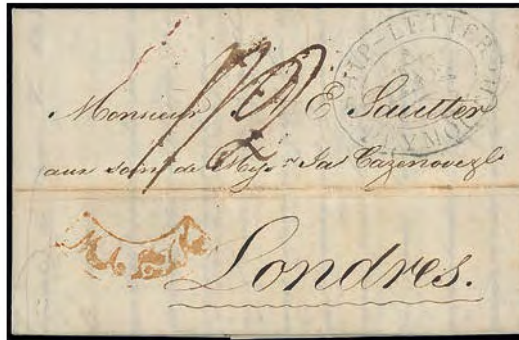 SHIP-LETTER
PLYMOUTH
Monsieur E Sautter
aux soins de Mess.rs Jas Cazenove & Co
Londres.